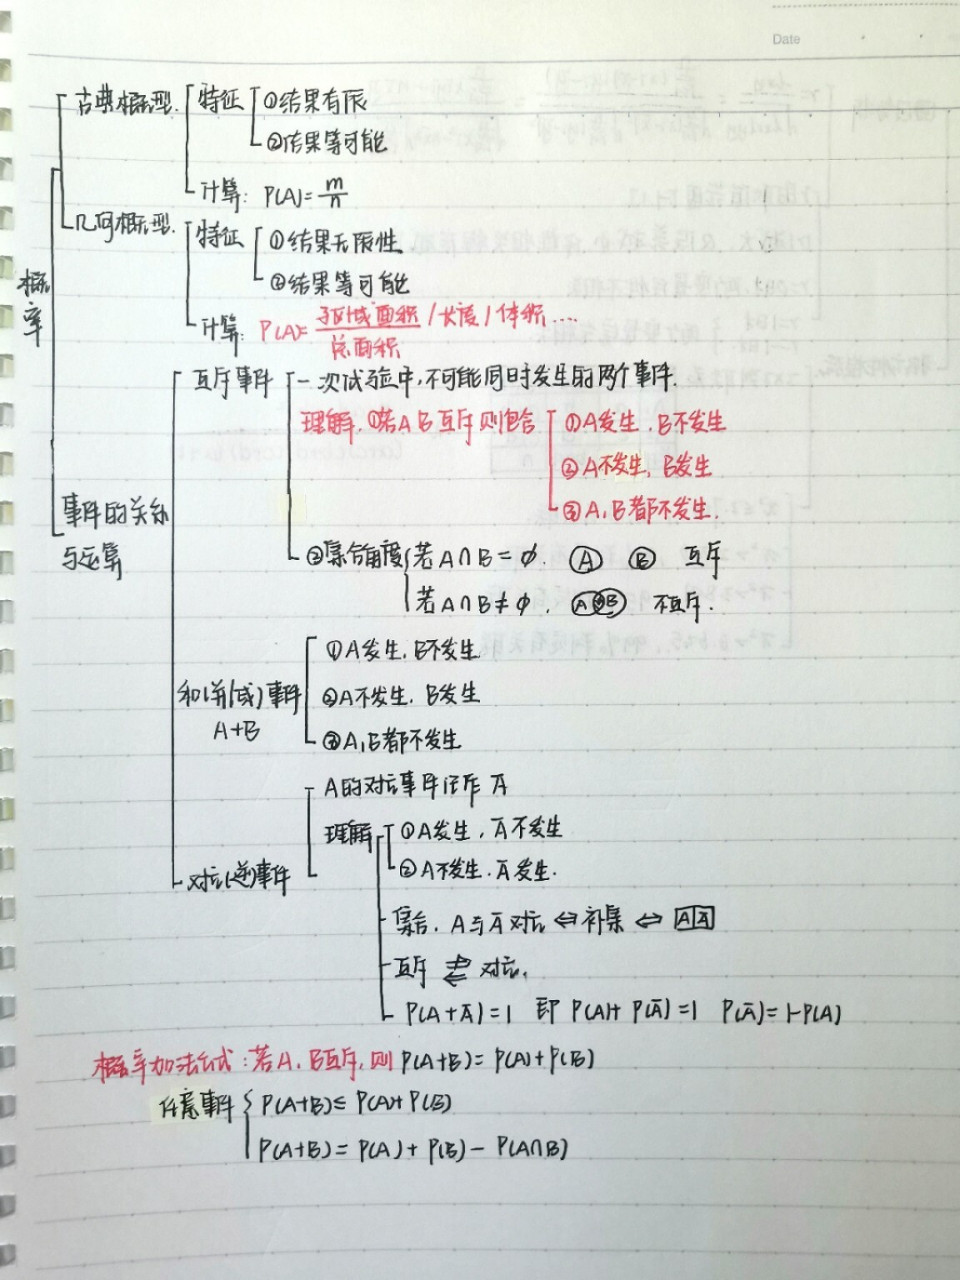 Date
概率
古典概型.
特征
①结果有限
②结果等可能
计算: P(A)= m/n
几何概型.
特征
①结果无限性
②结果等可能
计算: P(A)= 子区域面积/总面积 / 长度 / 体积 ....
事件的关系
与运算
互斥事件
一次试验中,不可能同时发生的两个事件.
理解. ①若A B互斥则包含
①A发生, B不发生
②A不发生, B发生
③A,B都不发生.
②集合角度
若A∩B=∅. Ⓐ Ⓑ 互斥
若A∩B≠∅. A B 不互斥.
和(并)(或)事件
A+B
①A发生, B不发生
②A不发生. B发生
③A,B都不发生
对立(逆)事件
A的对立事件记作 A̅
理解
①A发生, A̅不发生
②A不发生. A̅发生.
集合. A与A̅对立 ⇔ 补集 ⇔ A A̅
互斥 ⇄ 对立.
P(A+A̅)=1 即 P(A)+P(A̅)=1 P(A̅)=1-P(A)
概率加法公式:若A, B互斥,则 P(A+B)=P(A)+P(B)
任意事件
P(A+B)≤P(A)+P(B)
P(A+B)=P(A)+P(B)-P(A∩B)